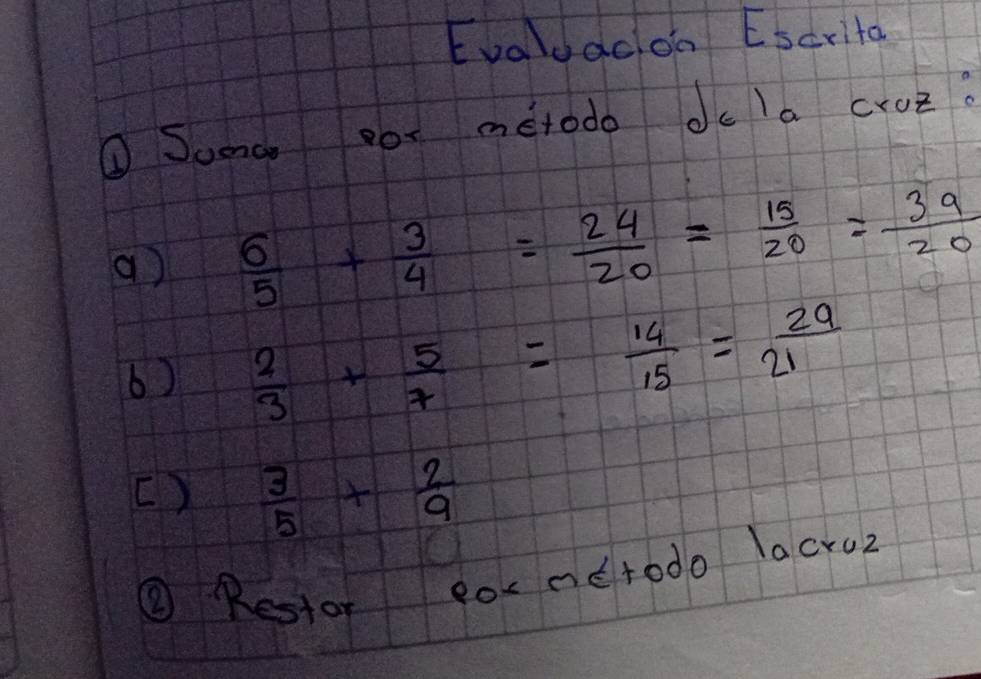 Evaluación Escrita
① Sumas por método de la cruz:
a) 6/5 + 3/4 = 24/20 = 15/20 = 39/20
b) 2/3 + 5/7 = 14/15 = 29/21
c) 3/5 + 2/9
② Restar por método la cruz